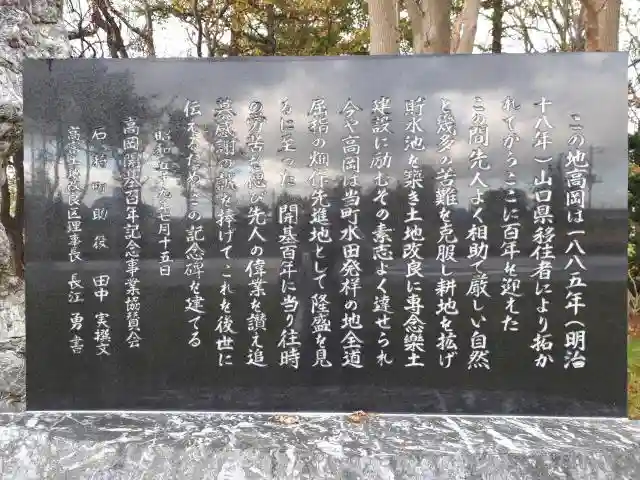 この地高岡は一八八五年（明治
十八年）山口県移住者により拓か
れてからここに百年を迎えた
この間先人よく相助て厳しい自然
と幾多の苦難を克服し耕地を拡げ
貯水池を築き土地改良に専念樂土
建設に励むその素志よく達せられ
今や高岡は当町水田発祥の地全道
屈指の畑作先進地として隆盛を見
るに至った 開基百年に当り往時
の労苦を偲び先人の偉業を讃え追
慕感謝の誠を捧げてこれを後世に
伝えるためこの記念碑を建てる
昭和五十九年七月十五日
高岡開基百年記念事業協賛会
町助役 田中 実撰文
高岡土地改良区理事長 長江 勇書